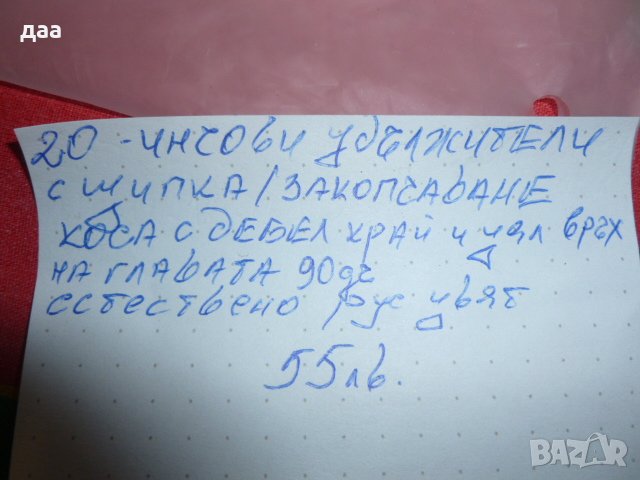 даа
20 -инчови удължители
с шипка/закопчаване
коса с дебел край и цял връх
на главата 90дг
естествено рус цвят
55лв.
BAZAR